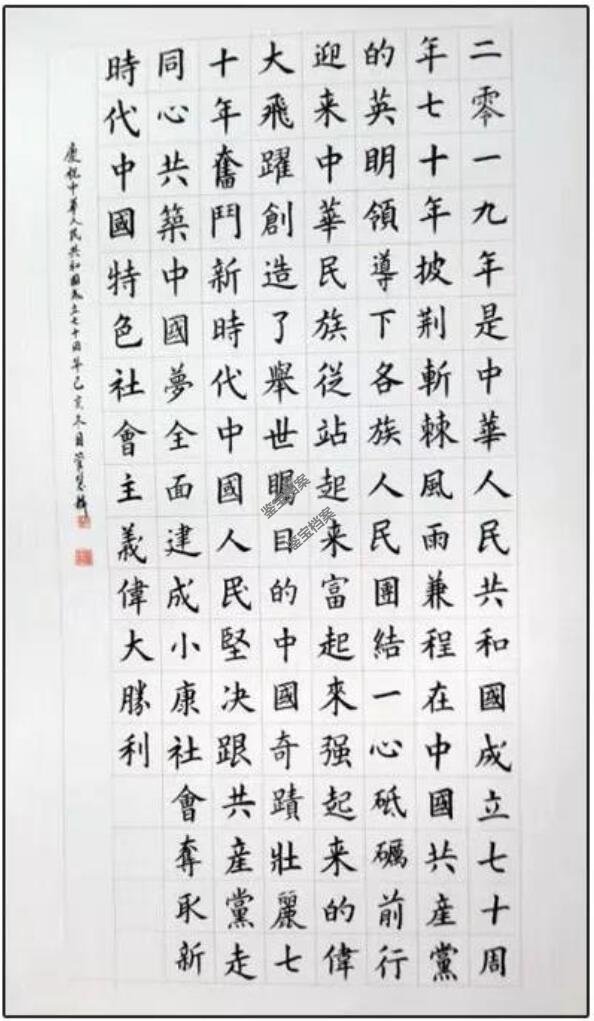 二零一九年是中華人民共和國成立七十周
年七十年披荆斬棘風雨兼程在中國共産黨
的英明領導下各族人民團結一心砥礪前行
迎来中華民族從站起来富起來强起来的偉
大飛躍創造了舉世矚目的中國奇蹟壯麗七
十年奮鬥新時代中國人民堅决跟共産黨走
同心共築中國夢全面建成小康社會奪取新
時代中國特色社會主義偉大勝利
慶祝中華人民共和國成立七十周年己亥冬月
鉴宝档案
鉴宝档案